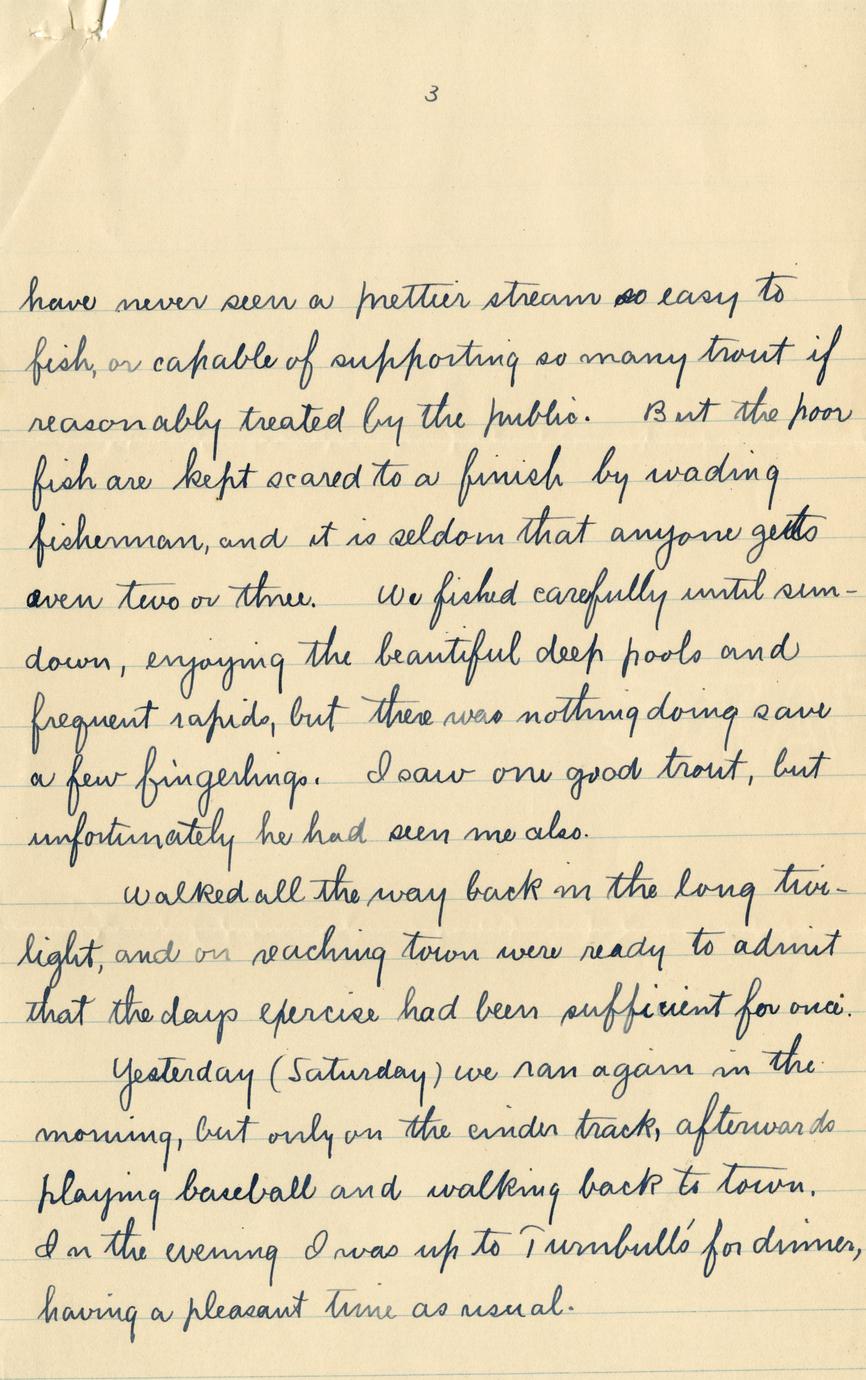 3
have never seen a prettier stream so easy to
fish, or capable of supporting so many trout if
reasonably treated by the public. But the poor
fish are kept scared to a finish by wading
fisherman, and it is seldom that anyone gets
even two or three. We fished carefully until sun-
down, enjoying the beautiful deep pools and
frequent rapids, but there was nothing doing save
a few fingerlings. I saw one good trout, but
unfortunately he had seen me also.
Walked all the way back in the long twi-
light, and on reaching town were ready to admit
that the days exercise had been sufficient for once.
Yesterday (Saturday) we ran again in the
morning, but only on the cinder track, afterwards
playing baseball and walking back to town.
In the evening I was up to Turnbull's for dinner,
having a pleasant time as usual.